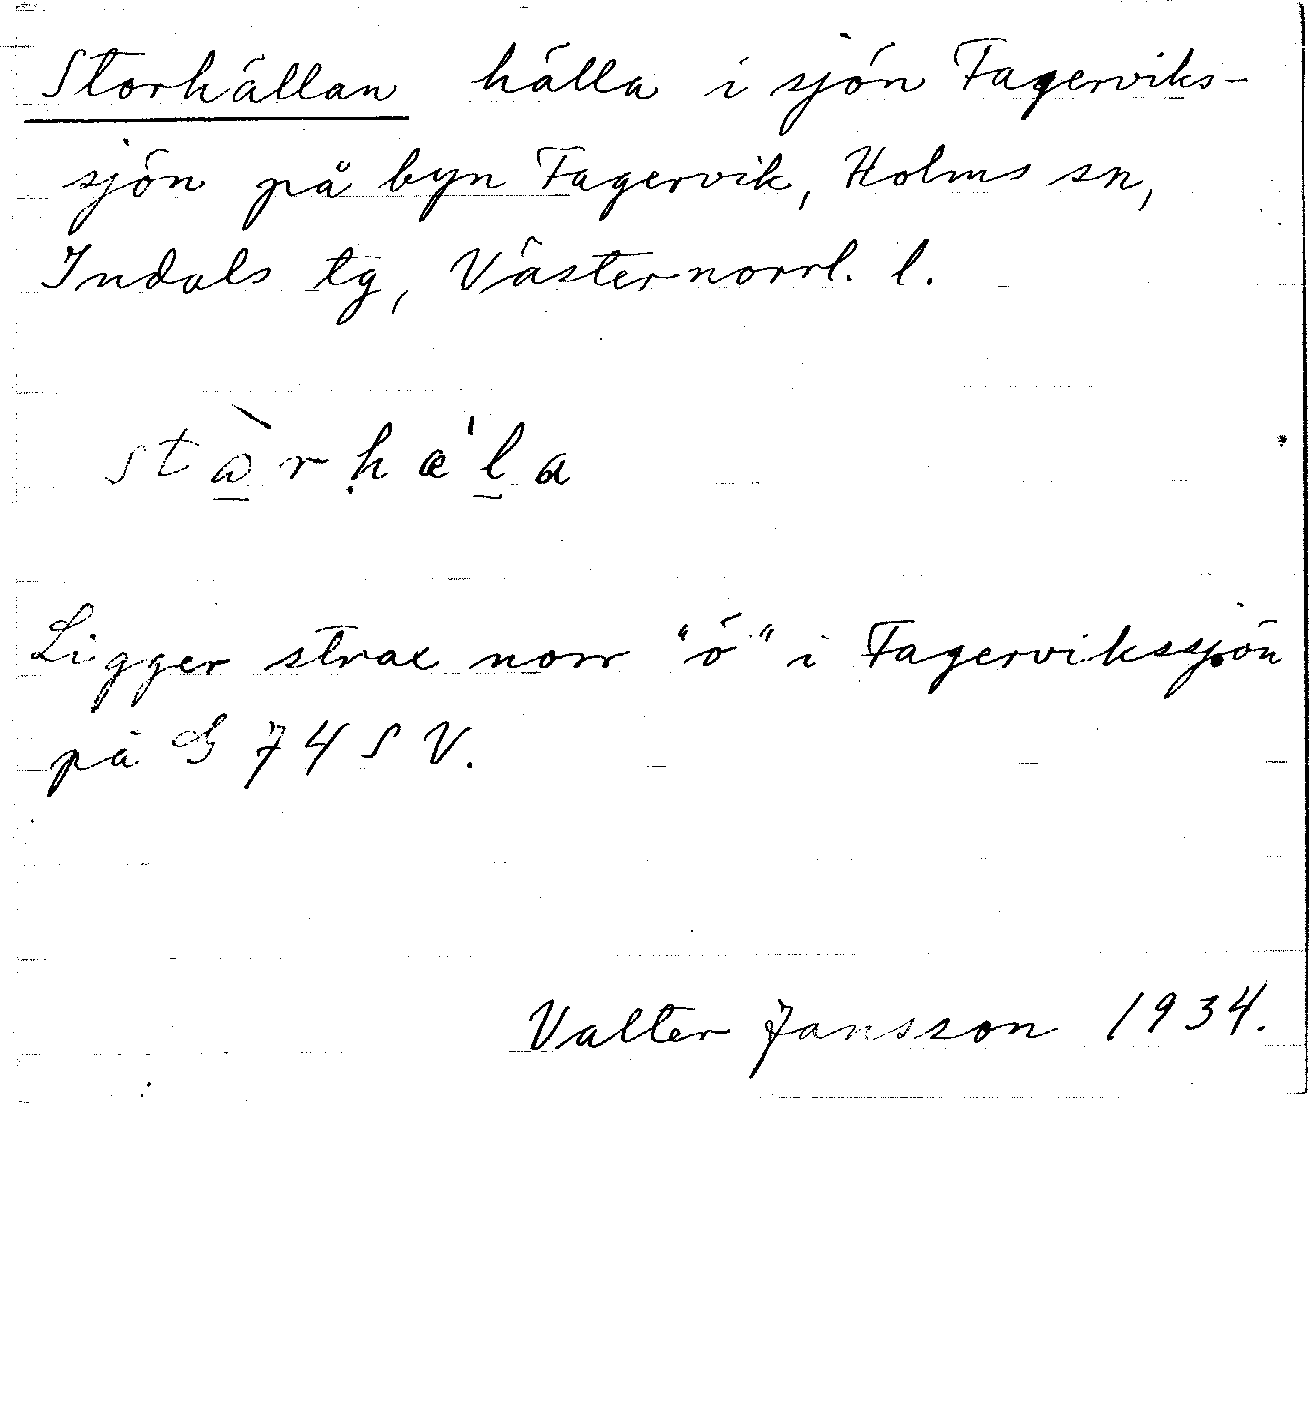 Storhällan hälla i sjön Fagerviks-
sjön på byn Fagervik, Holms sn,
Indals tg, Västernorrl. l.
stàrhæ'la
Ligger strax norr "ö" i Fagervikssjön
på G 74 SV.
Valter Jansson 1934.